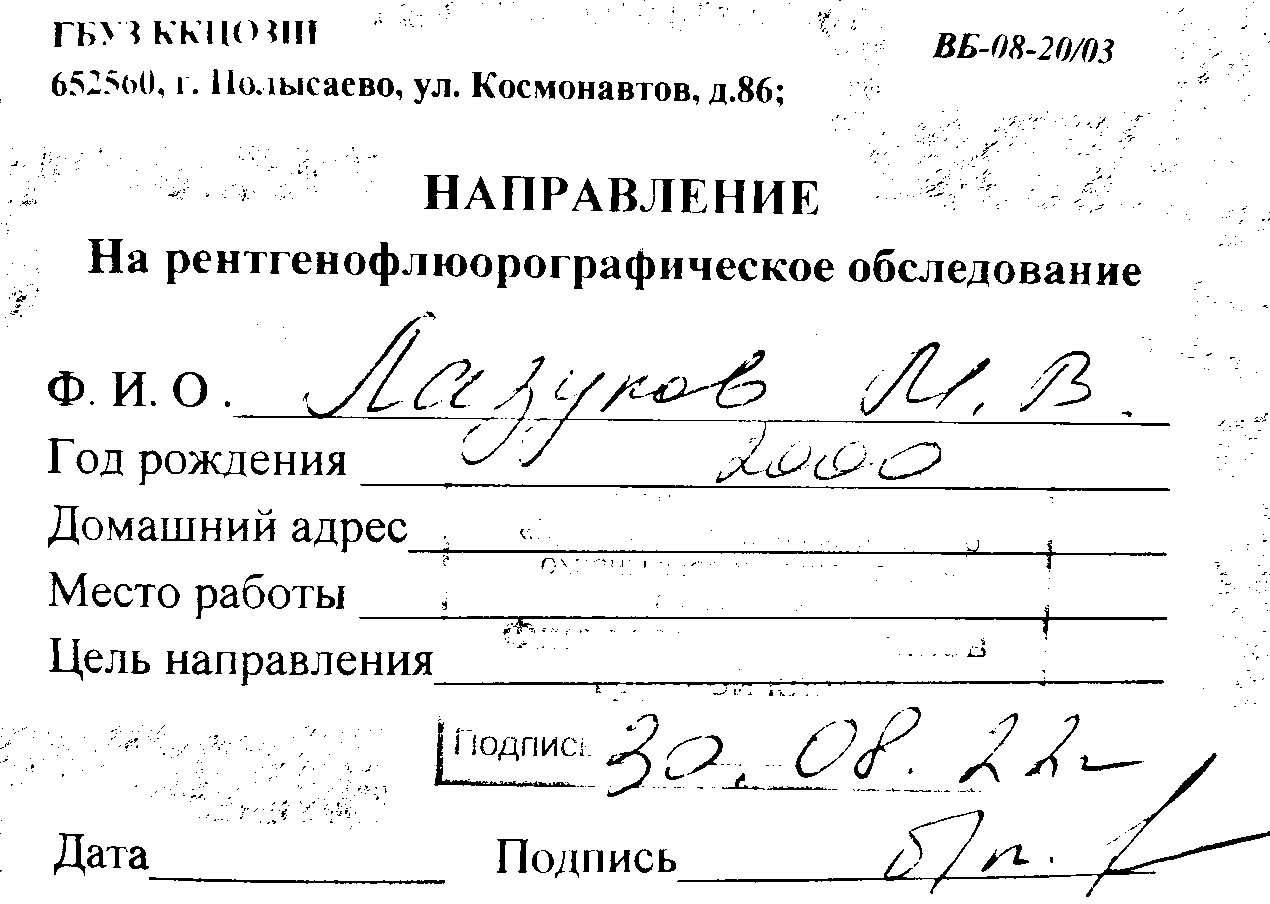 ГБУЗ ККЦОЗШ
ВБ-08-20/03
652560, г. Полысаево, ул. Космонавтов, д.86;
НАПРАВЛЕНИЕ
На рентгенофлюорографическое обследование
Ф. И. О. Лазуков М. В.
Год рождения 2000
Домашний адрес
Место работы
Цель направления
Подпись 30.08.22г
Дата
Подпись б/п.